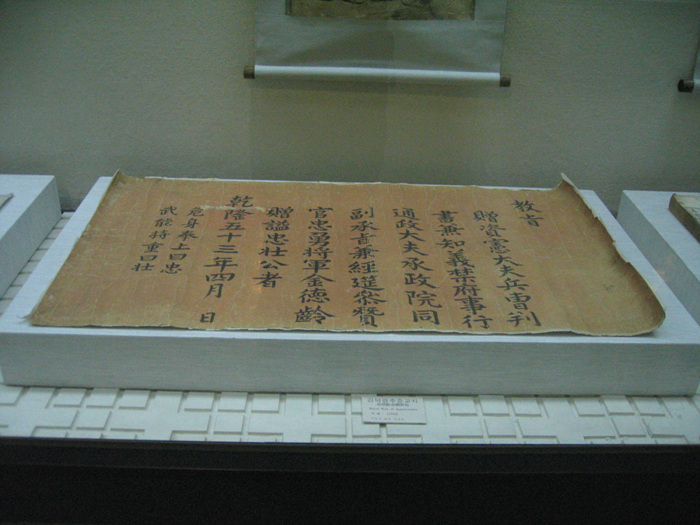 教旨
贈資憲大夫兵曺判
書兼知義禁府事行
通政大夫承政院同
副承旨兼經筵參贊
官忠勇將軍金德齡
贈諡忠壯公者
乾隆五十三年四月 日
危身奉上曰忠
武能持重曰壯
김덕령추증교지